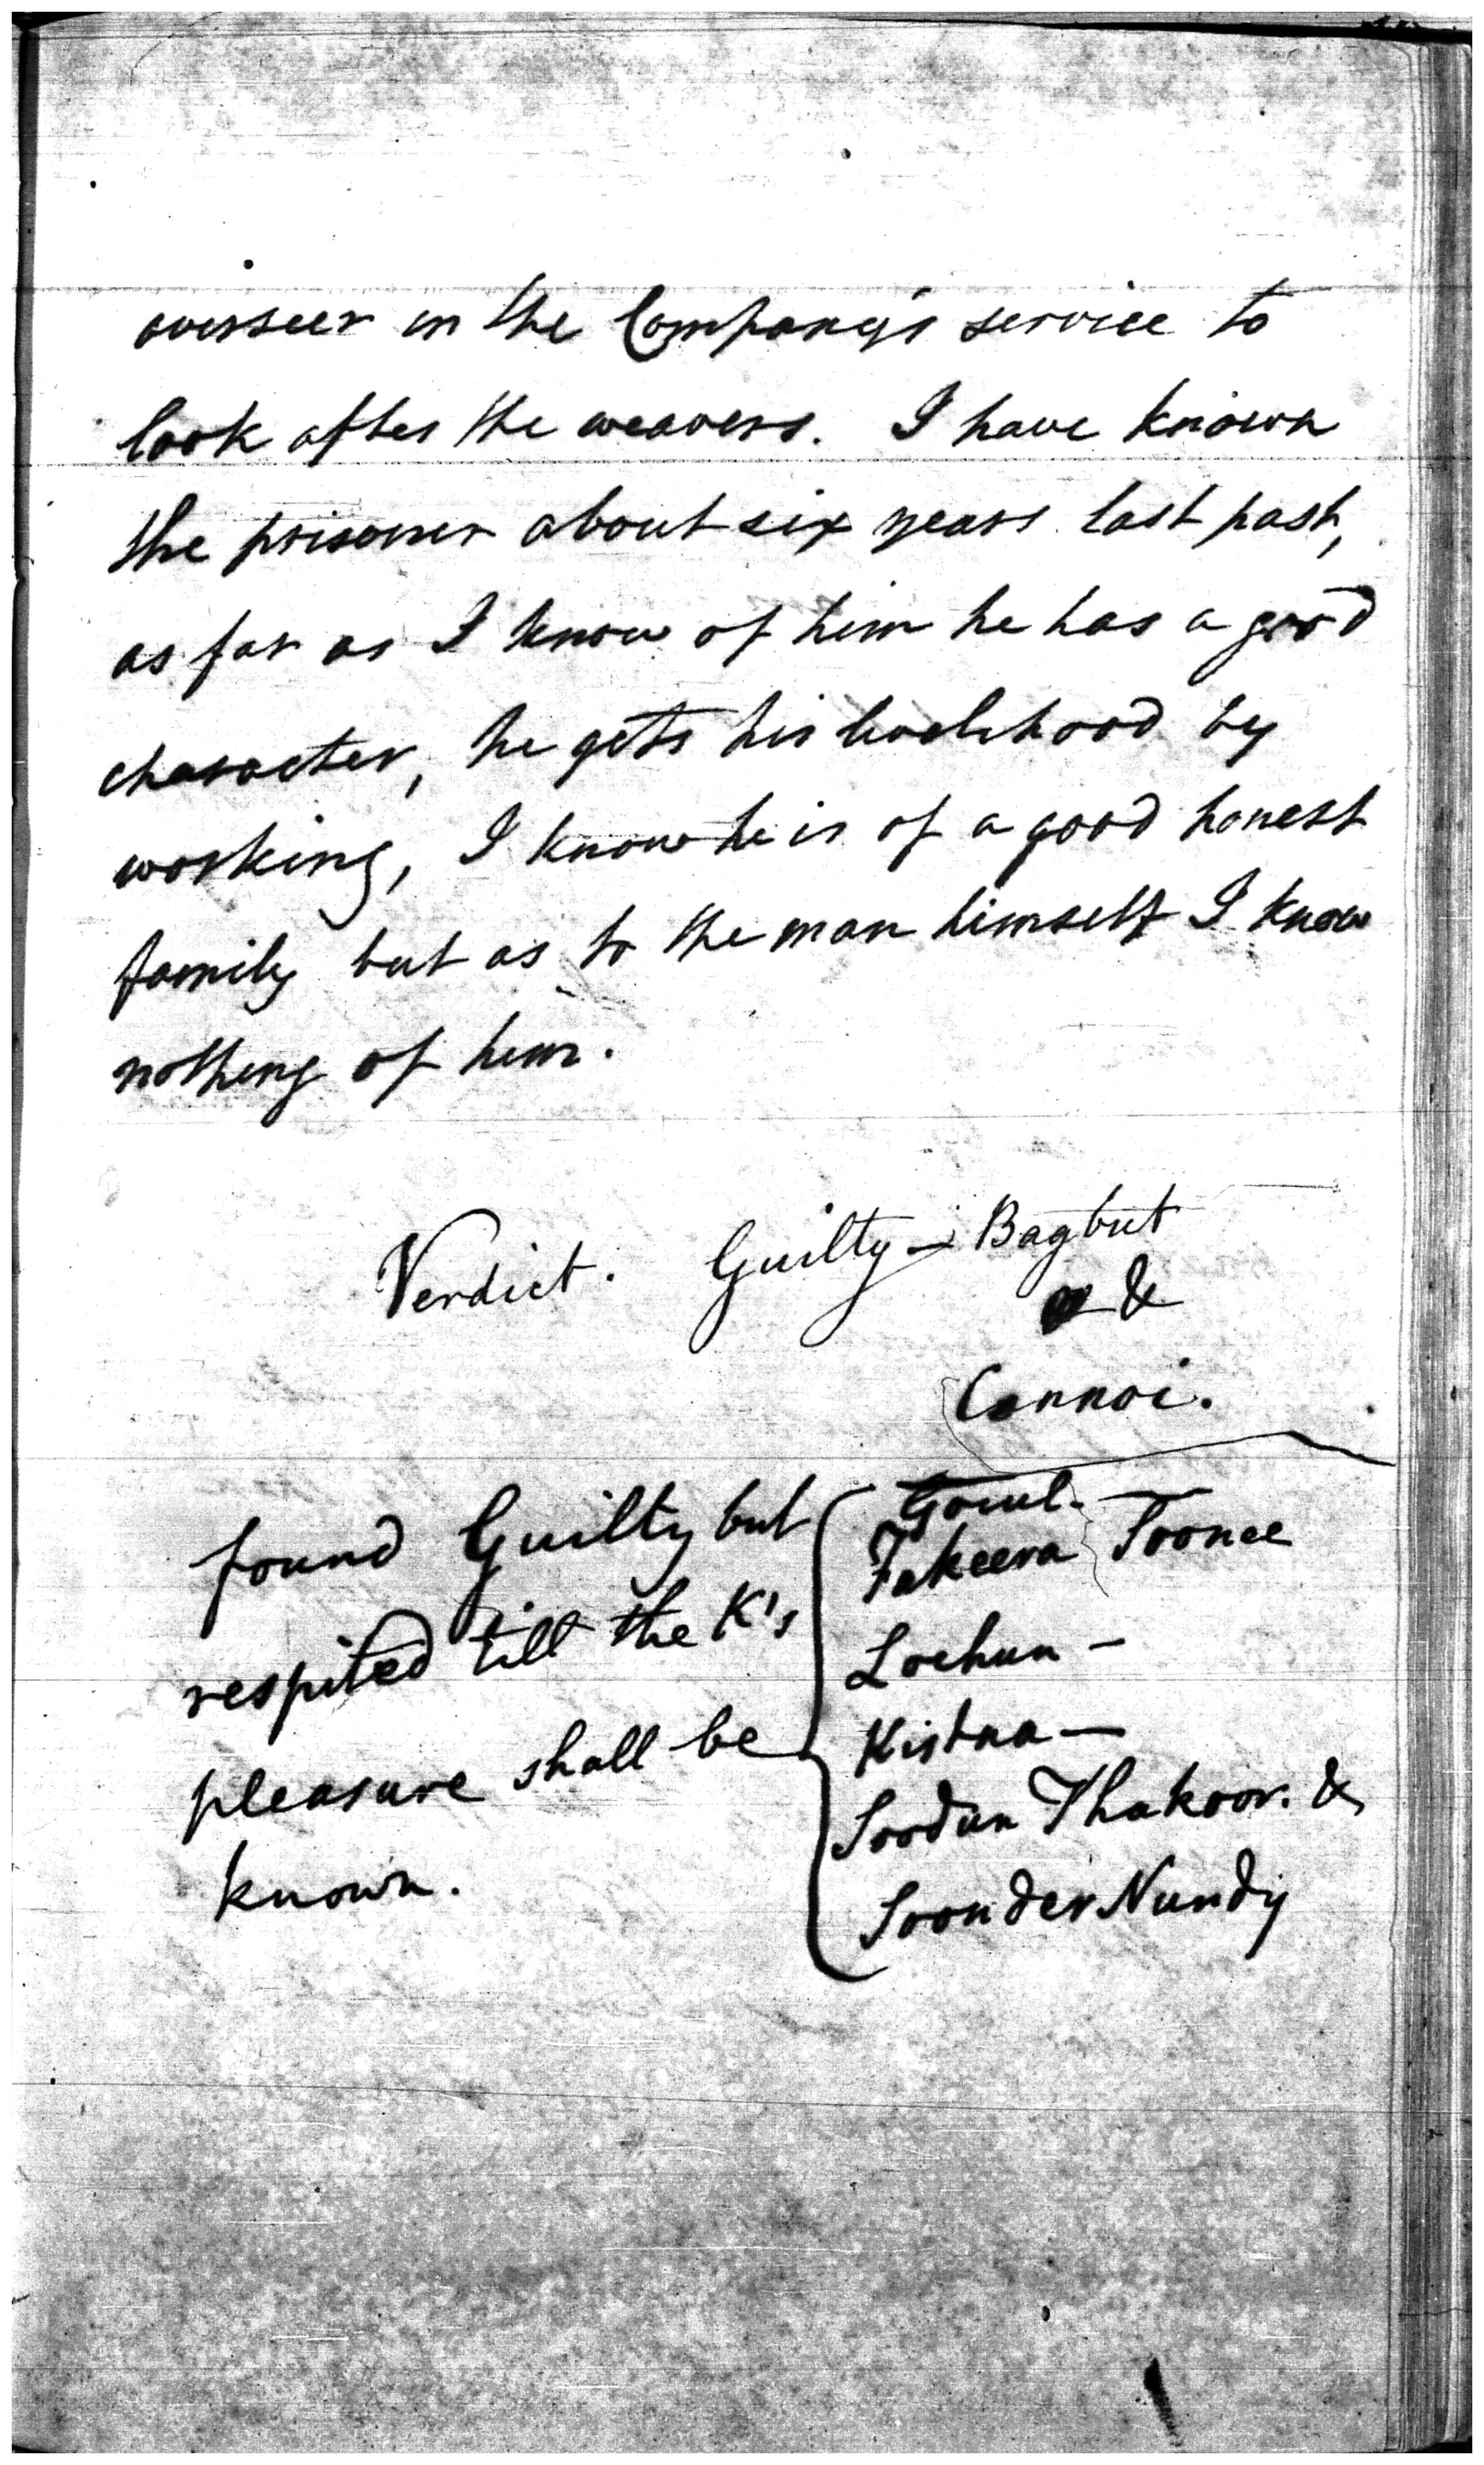 overseer in the Company's service to
look after the weavers. I have known
the prisoner about six years last past,
as far as I know of him he has a good
character, he gets his livelihood by
working, I know he is of a good honest
family but as to the man himself I know
nothing of him.
Verdict. Guilty - Bagbut
&
Connoi.
found Guilty but
respited till the K's
pleasure shall be
known.
Gocul -
Fakeera Toonee
Lochun -
Kistna -
Soodun Thakoor. &
Soonder Nundy